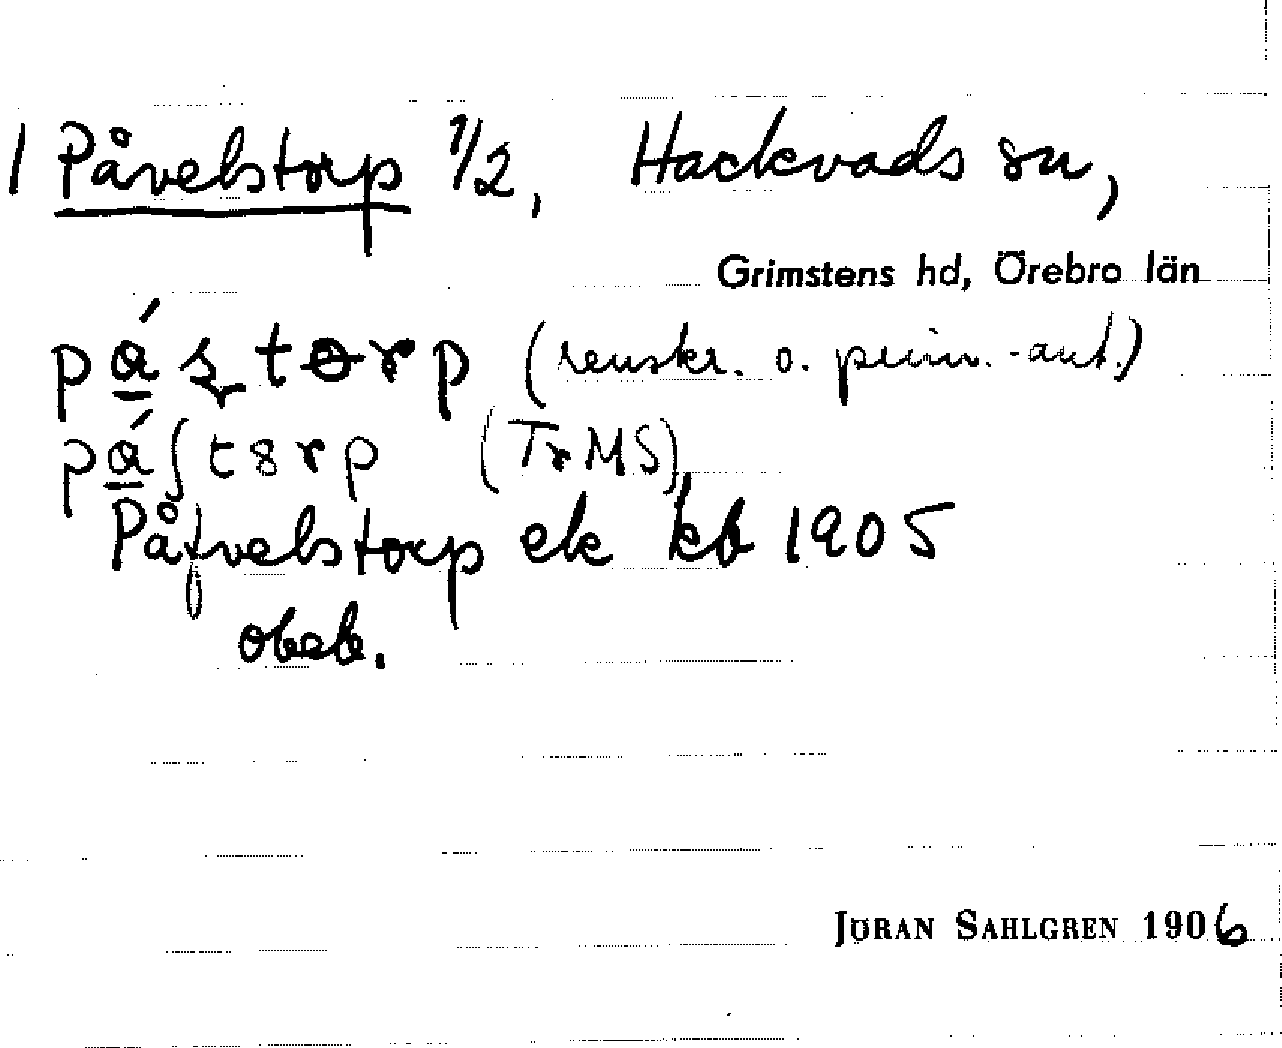 1 Påvelstorp 1/2, Hackvads sn,
Grimstens hd, Örebro län
(renskr. o. prim.-ant.)
(Tr MS)
Påfvelstorp ek kb 1905
obeb.
JÖRAN SAHLGREN 1906